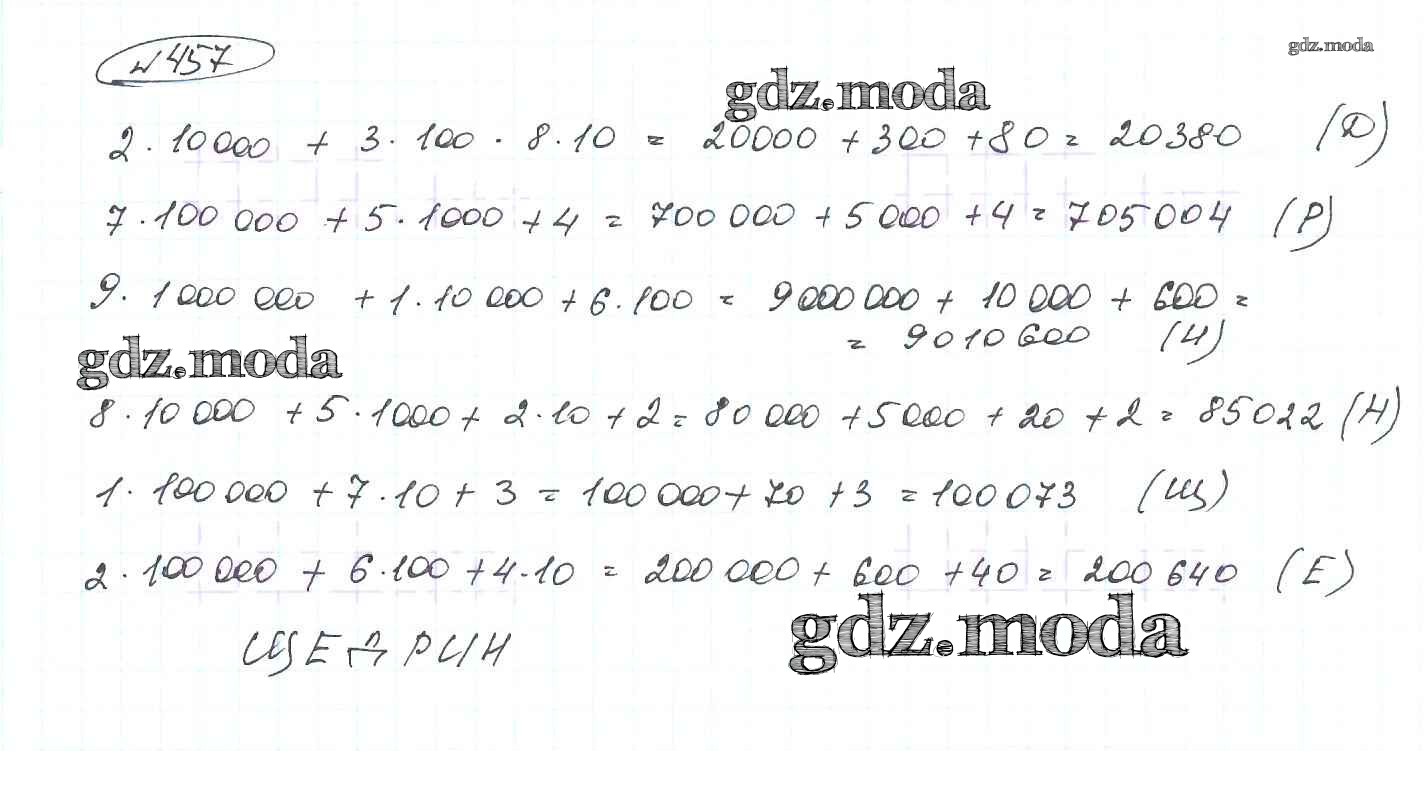 № 457
gdz.moda
gdz.moda
2 · 10 000 + 3 · 100 · 8 · 10 = 20000 + 300 + 80 = 20380 (Д)
7 · 100 000 + 5 · 1000 + 4 = 700 000 + 5 000 + 4 = 705 004 (Р)
9 · 1 000 000 + 1 · 10 000 + 6 · 100 = 9 000 000 + 10 000 + 600 =
= 9 010 600 (И)
gdz.moda
8 · 10 000 + 5 · 1000 + 2 · 10 + 2 = 80 000 + 5000 + 20 + 2 = 85022 (Н)
1 · 100 000 + 7 · 10 + 3 = 100 000 + 70 + 3 = 100 073 (Щ)
2 · 100 000 + 6 · 100 + 4 · 10 = 200 000 + 600 + 40 = 200 640 (Е)
ЩЕДРИН
gdz.moda